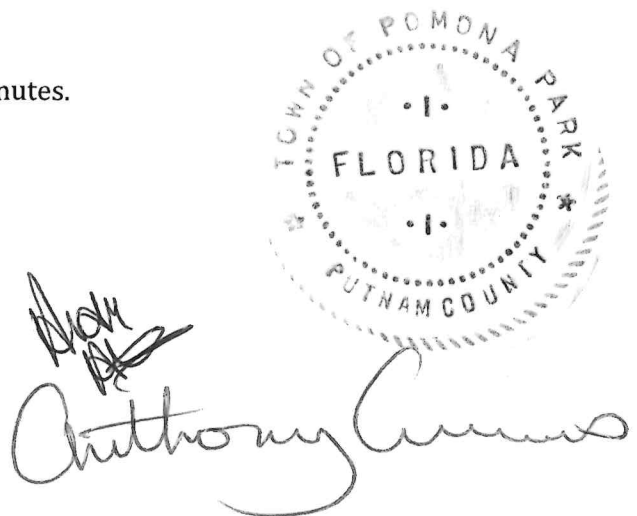 nutes.
TOWN OF POMONA PARK
FLORIDA
PUTNAM COUNTY
Anthony